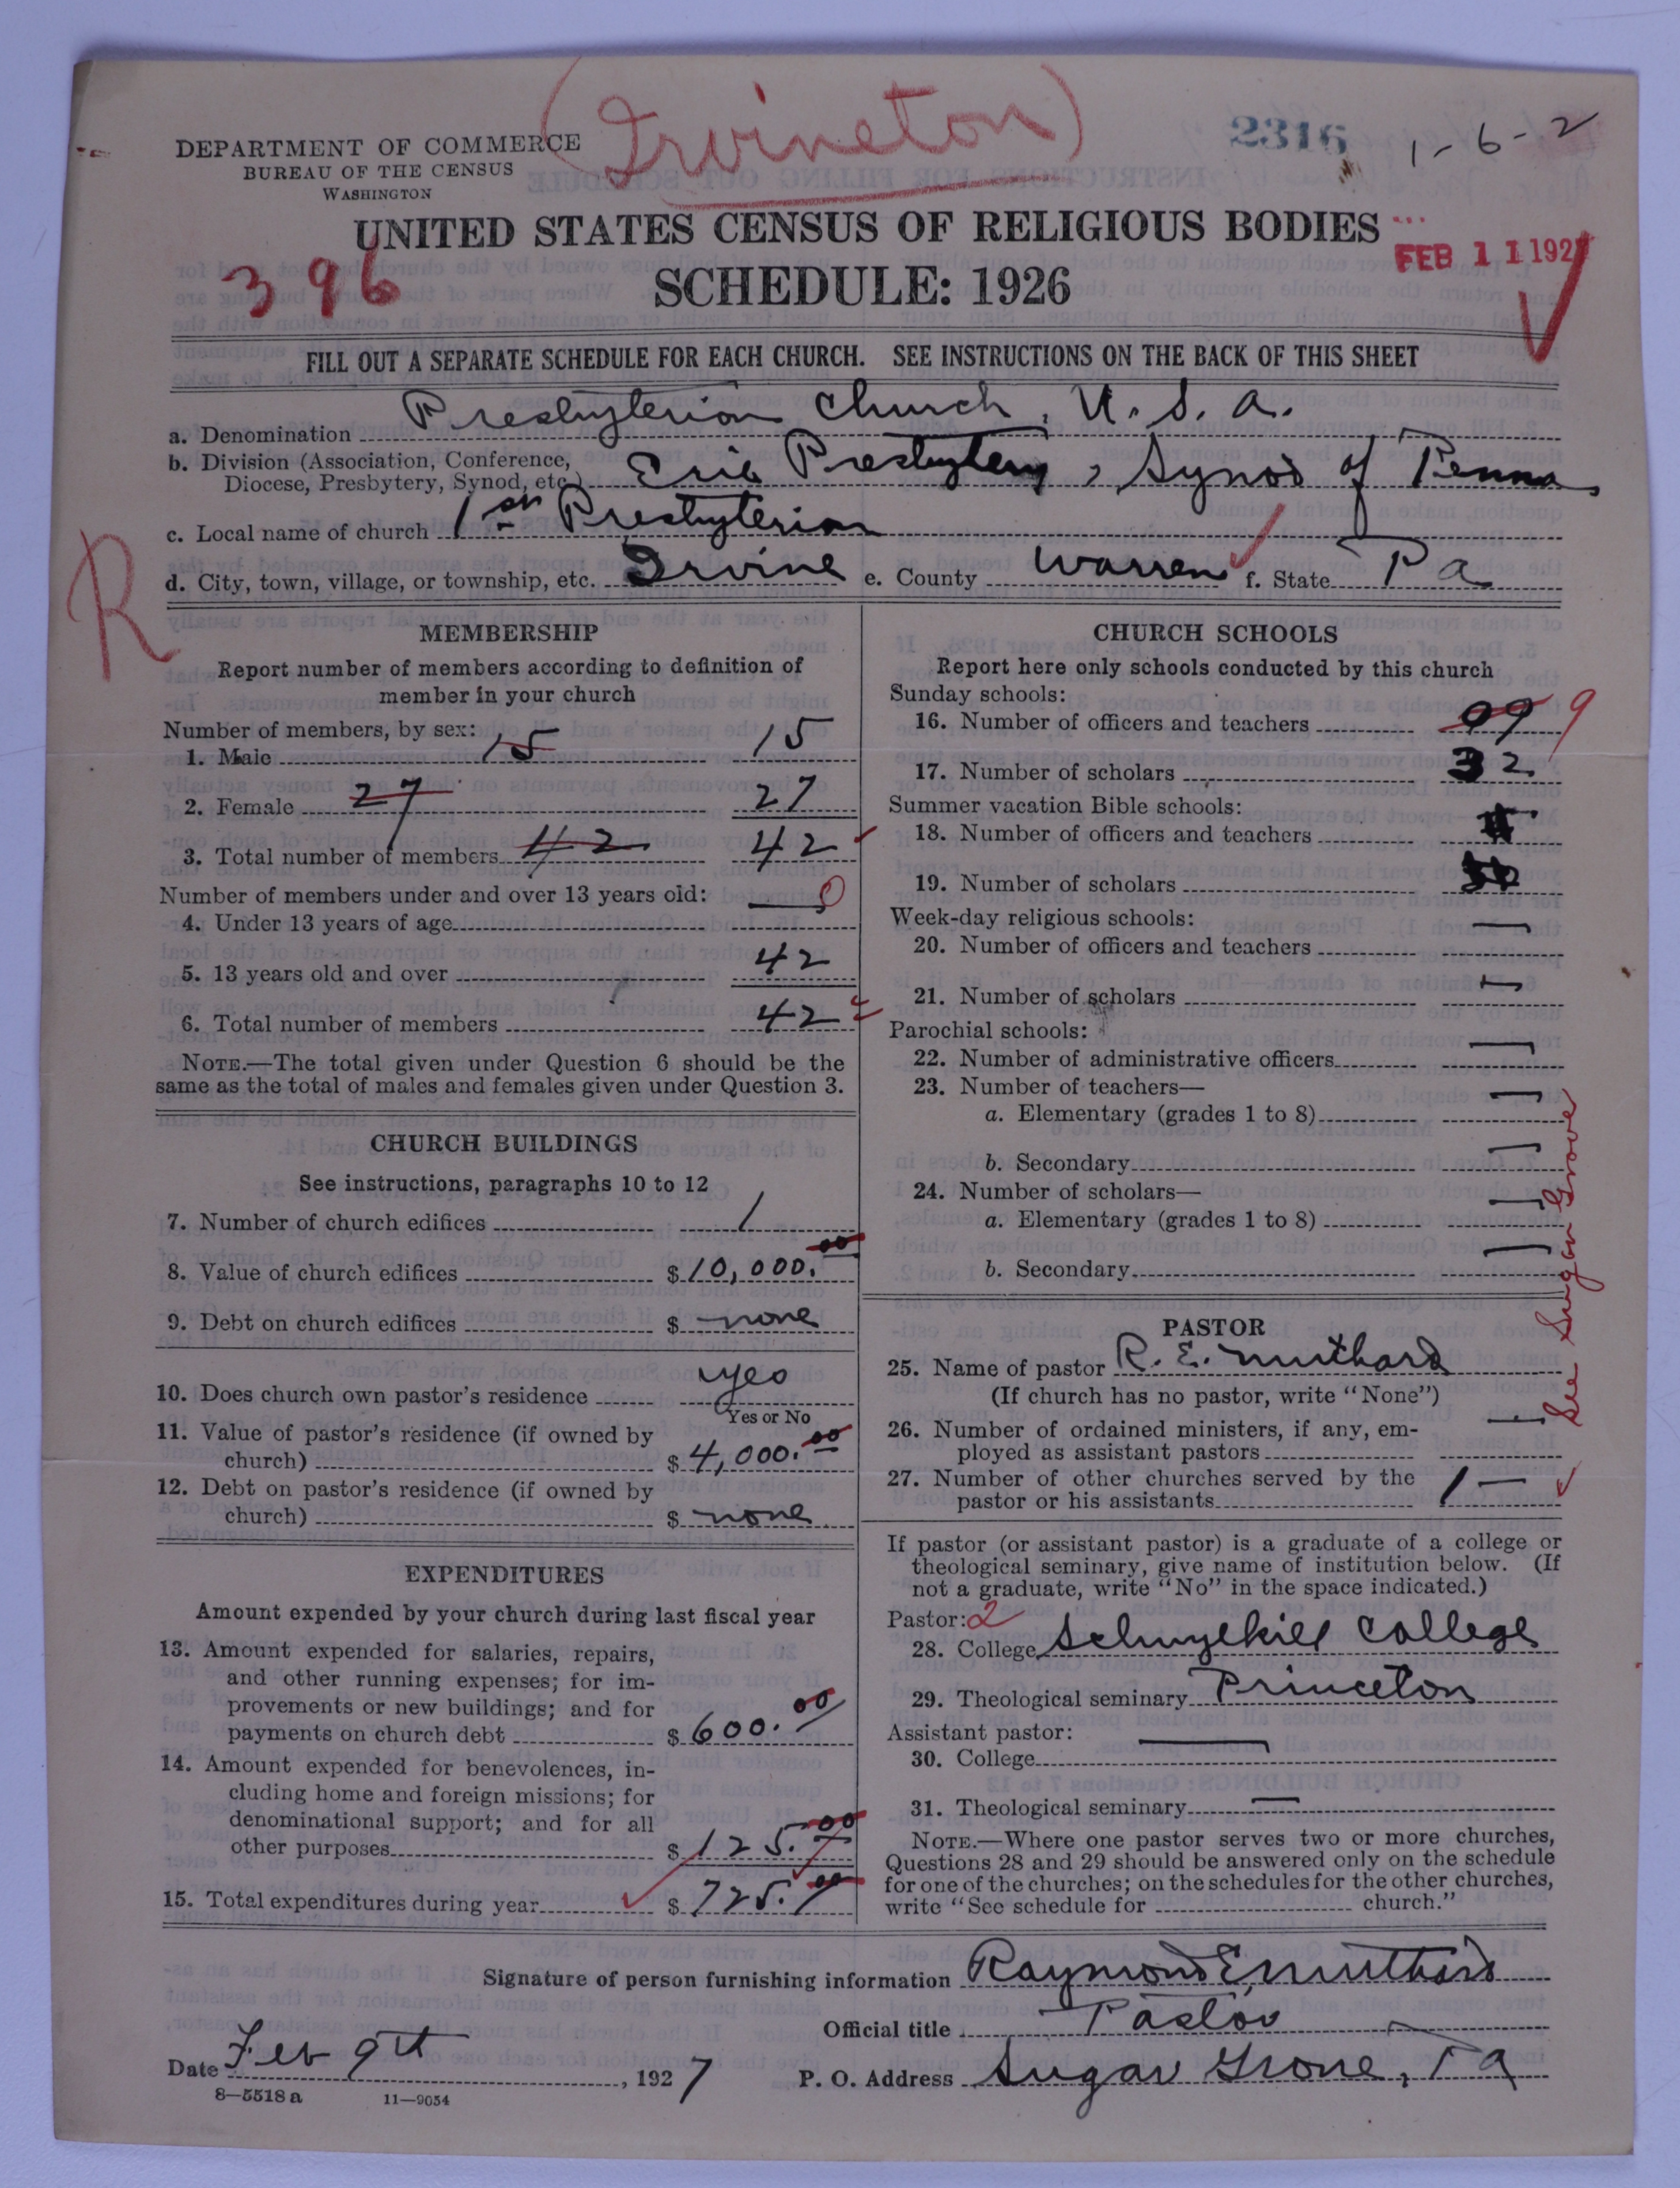 (Irvineton)
2316
1-6-2
DEPARTMENT OF COMMERCE
BUREAU OF THE CENSUS
WASHINGTON
UNITED STATES CENSUS OF RELIGIOUS BODIES
SCHEDULE: 1926
396
FEB 11 1927
FILL OUT A SEPARATE SCHEDULE FOR EACH CHURCH. SEE INSTRUCTIONS ON THE BACK OF THIS SHEET
a. Denomination Presbyterian Church, U. S. A.
b. Division (Association, Conference,
Diocese, Presbytery, Synod, etc.) Erie Presbytery, Synod of Penna
c. Local name of church 1st Presbyterian
d. City, town, village, or township, etc. Irvine e. County Warren f. State Pa
R
MEMBERSHIP
Report number of members according to definition of
member in your church
Number of members, by sex:
1. Male 15 15
2. Female 27 27
3. Total number of members 42 42
Number of members under and over 13 years old:
4. Under 13 years of age — 0
5. 13 years old and over 42
6. Total number of members 42
NOTE.—The total given under Question 6 should be the
same as the total of males and females given under Question 3.
CHURCH BUILDINGS
See instructions, paragraphs 10 to 12
7. Number of church edifices 1
8. Value of church edifices $10,000.00
9. Debt on church edifices $ none
10. Does church own pastor's residence yes
Yes or No
11. Value of pastor's residence (if owned by
church) $4,000.00
12. Debt on pastor's residence (if owned by
church) $ none
EXPENDITURES
Amount expended by your church during last fiscal year
13. Amount expended for salaries, repairs,
and other running expenses; for im-
provements or new buildings; and for
payments on church debt $600.00
14. Amount expended for benevolences, in-
cluding home and foreign missions; for
denominational support; and for all
other purposes $125.00
15. Total expenditures during year $725.00
CHURCH SCHOOLS
Report here only schools conducted by this church
Sunday schools:
16. Number of officers and teachers 09 9
17. Number of scholars 32
Summer vacation Bible schools:
18. Number of officers and teachers
19. Number of scholars
Week-day religious schools:
20. Number of officers and teachers —
21. Number of scholars —
Parochial schools:
22. Number of administrative officers —
23. Number of teachers—
a. Elementary (grades 1 to 8) —
b. Secondary —
24. Number of scholars—
a. Elementary (grades 1 to 8) —
b. Secondary —
See Sugar Grove
PASTOR
25. Name of pastor R. E. Muthard
(If church has no pastor, write "None")
26. Number of ordained ministers, if any, em-
ployed as assistant pastors —
27. Number of other churches served by the
pastor or his assistants 1 —
If pastor (or assistant pastor) is a graduate of a college or
theological seminary, give name of institution below. (If
not a graduate, write "No" in the space indicated.)
Pastor: 2
28. College Schuylkill College
29. Theological seminary Princeton
Assistant pastor:
30. College —
31. Theological seminary —
NOTE.—Where one pastor serves two or more churches,
Questions 28 and 29 should be answered only on the schedule
for one of the churches; on the schedules for the other churches,
write "See schedule for church."
Signature of person furnishing information Raymond E Muthard
Official title Pastor
Date Feb 9th, 1927 P. O. Address Sugar Grove, Pa
8—5518 a 11—9054